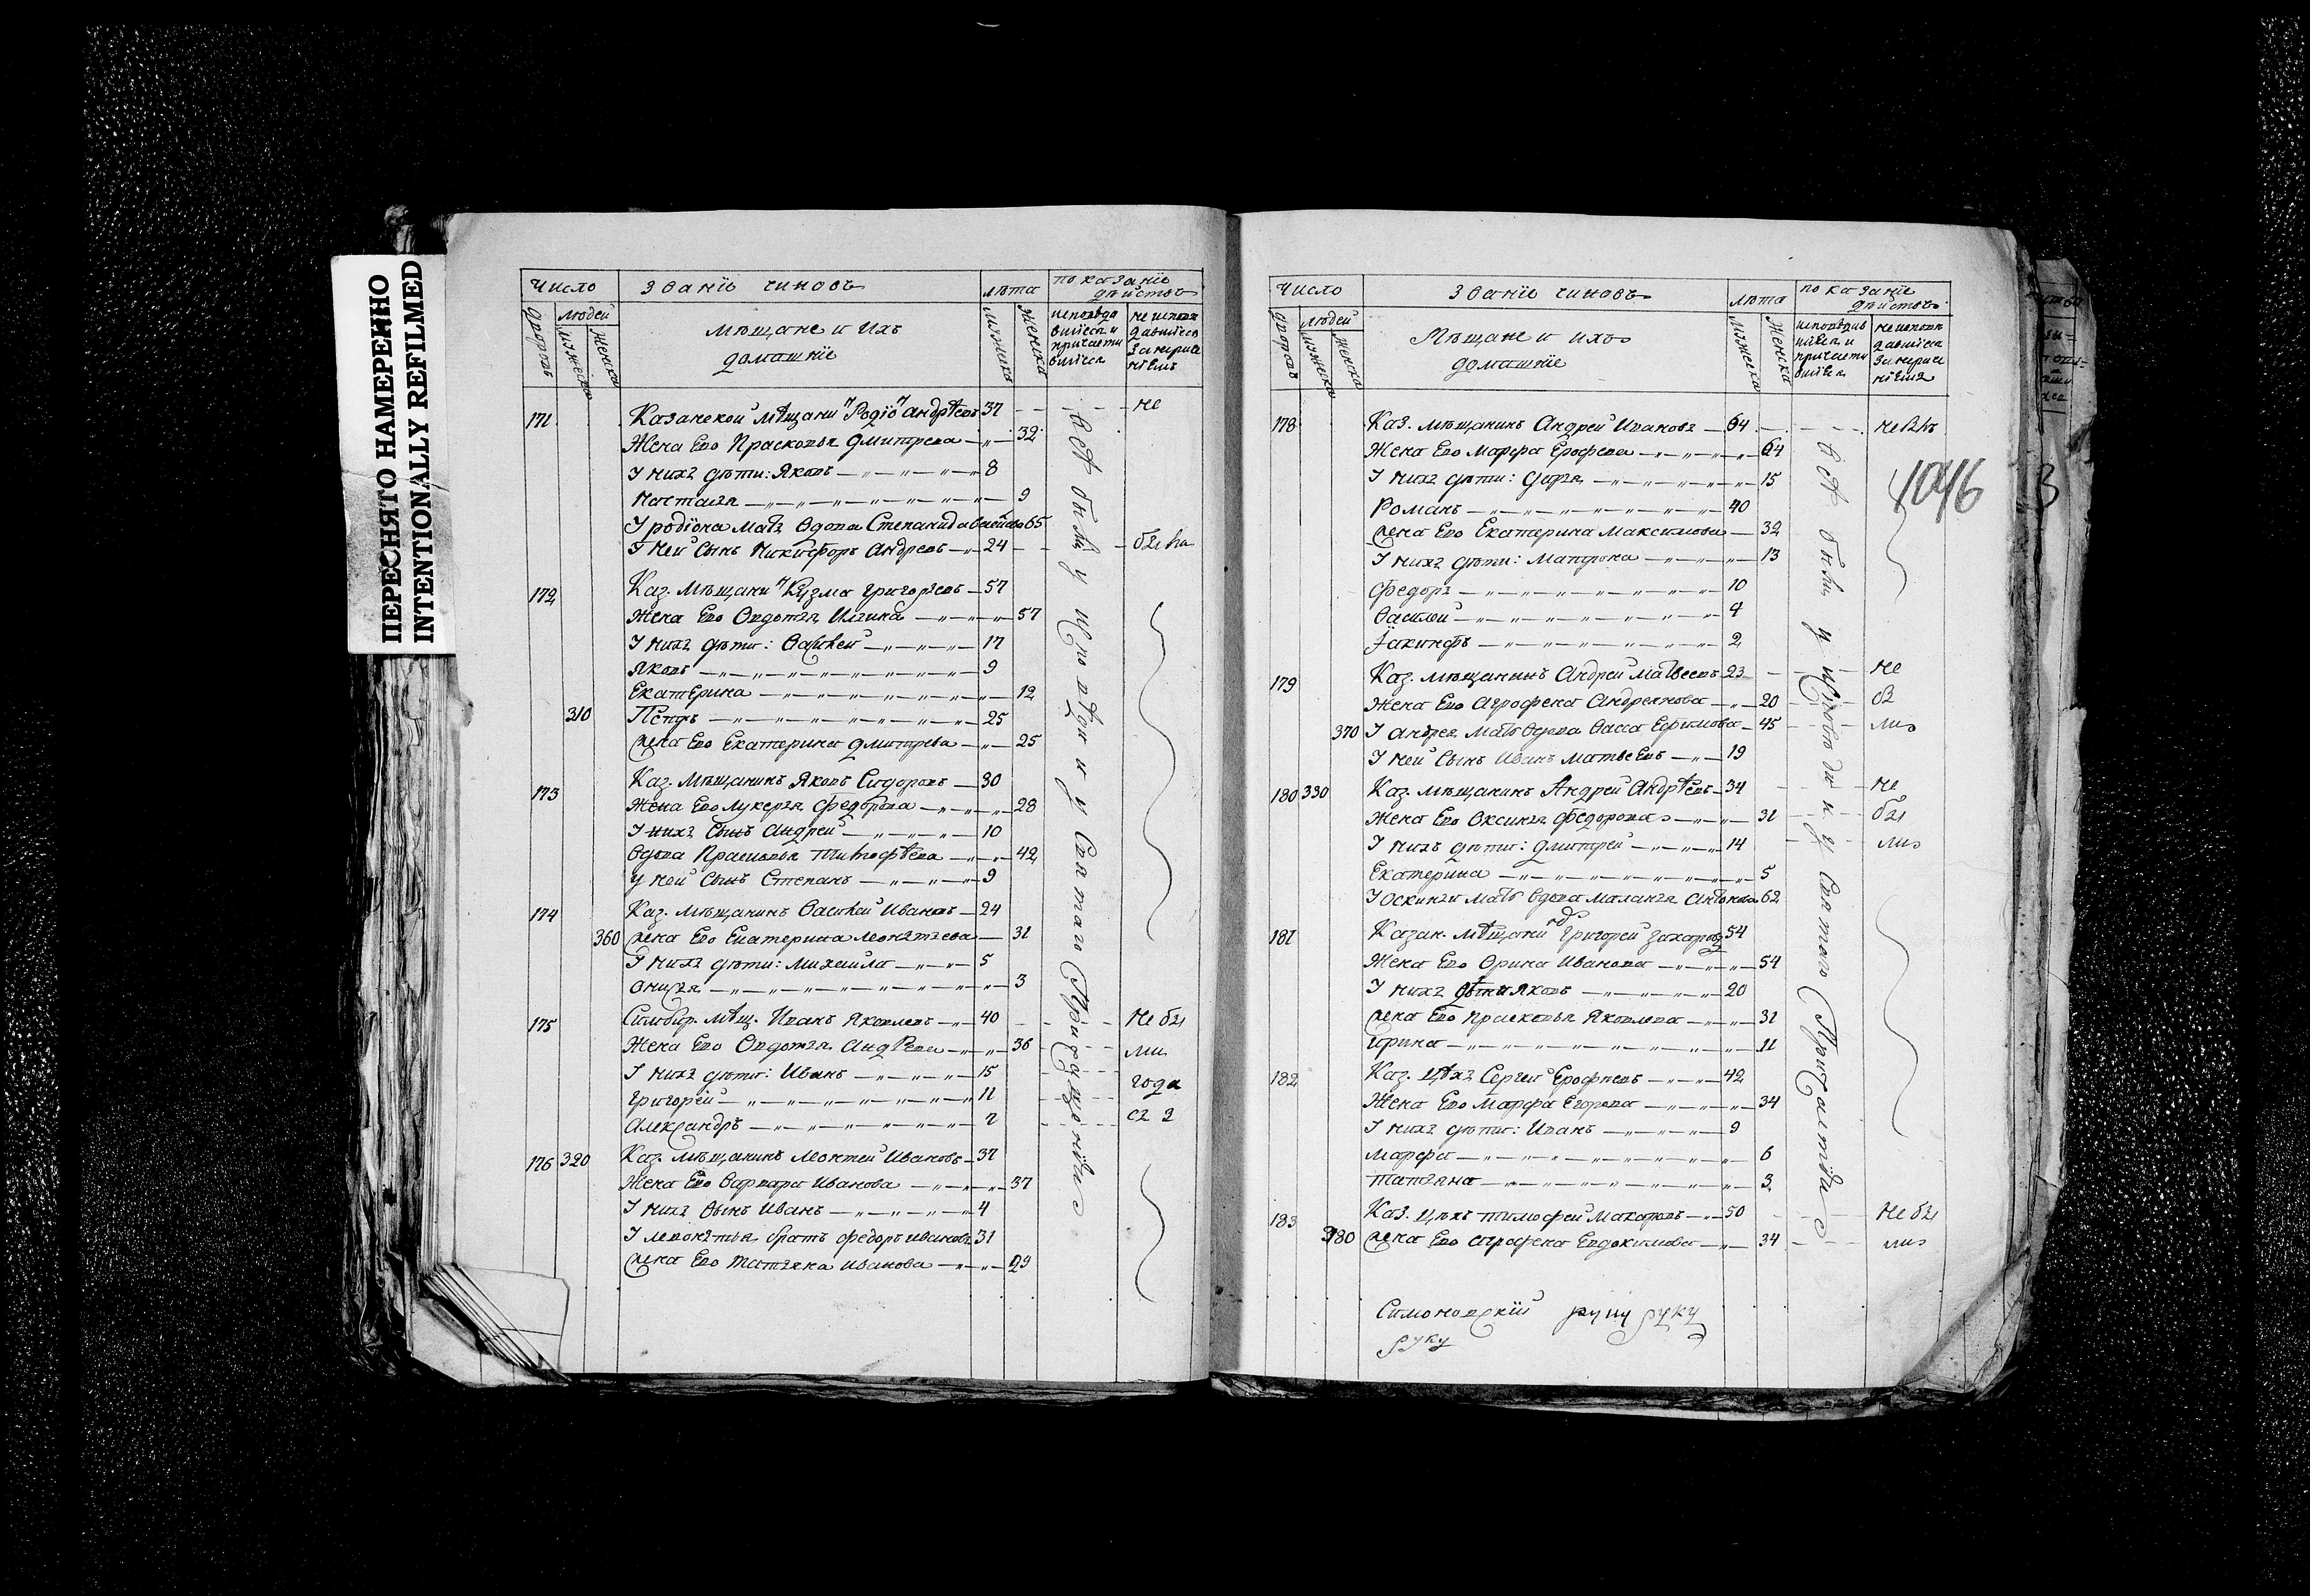 ПЕРЕСНЯТО НАМЕРЕННО
INTENTIONALLY REFILMED
Число Званіе чиновъ лѣта показаніе дѣйствъ
дворовъ людей мужеска женска
Мѣщане и ихъ домашніе
мужеска женска
исповѣдавшіеся и причастившіеся
171 Казанской мѣщани Родіо Андрѣевъ 37 не
Жена Ево Прасковья Дмитрева 32
У нихъ дѣти: Яковъ 8
Настасья 9
У родіона мать Вдова Степанида 65
У ней Сынъ Никифоръ Андревъ 24 были
172 Каз. Мѣщани Кузма Григорьевъ 57
Жена Ево Овдотья Ильина 57
У нихъ дѣти: Василей 17
Яковъ 9
Екатерина 12
310 Петръ 25
жена Ево Екатерина Дмитрева 25
173 Каз. Мѣщанинъ Яковъ Сидоровъ 30
Жена Ево Лукерья Федорова 28
У нихъ Сынъ Андрей 10
Вдова Прасковья Тимофѣева 42
у ней Сынъ Степанъ 9
174 Каз. Мѣщанинъ Василей Ивановъ 24
360 жена Ево Екатерина Леонтьева 31
У нихъ дѣти: Михаила 5
Онисья 3
175 Симбир. мѣщ. Иванъ Яковлевъ 40 не бы
Жена Ево Овдотья Андрева 36 ли
У нихъ дѣти: Иванъ 15 года
Григорей 11 съ 2
Александръ 7
176 320 Каз. мѣщанинъ Леонтей Ивановъ 37
Жена Ево Варвара Иванова 37
У нихъ Сынъ Иванъ 4
У леонтья братъ Федоръ Ивановъ 31
жена Ево Татьяна Иванова 29
всѣ были у исповѣди и у Святаго Причащенія
Число Званіе чиновъ лѣта показаніе дѣйствъ
дворовъ людей мужеска женска
Мѣщане и ихъ домашніе
мужеска женска
1046
178 Каз. мѣщанинъ Андрей Ивановъ 64
Жена Ево Марфа Ерофева 64
У нихъ дѣти: Дарья 15
Романъ 40
жена Ево Екатерина Максимова 32
У нихъ дѣти: Матрона 13
Федоръ 10
Василей 4
Іакинфъ 2
179 Каз. мѣщанинъ Андрей Матвеевъ 23 не
Жена Ево Агрофена Андреянова 20 бы
370 У андрея мать Вдова Васса Ефимова 45 ли
У ней Сынъ Иванъ Матвеевъ 19
180 330 Каз. мѣщанинъ Андрей Андрѣевъ 34 не
Жена Ево Оксинья Федорова 31 бы
У нихъ дѣти: Дмитрей 14 ли
Екатерина 5
У оскиньи мать Вдова Маланья Антонова 62
181 Казан. мѣщани Григорей Захаровъ 54
Жена Ево Орина Иванова 54
У нихъ дѣти Яковъ 20
жена Ево Прасковья Яковлева 31
Ирина 11
182 Каз. цѣхъ Сергей Ерофеевъ 42
Жена Ево Марфа Егорова 34
У нихъ дѣти: Иванъ 9
Марфа 6
Татьяна 3
183 Каз. цѣхъ Тимофей Макаровъ 50 не бы
380 жена Ево Агрофена Евдокимова 34 ли
всѣ были у исповѣди и у Святаго Причастія
Симоновскій руку
руку